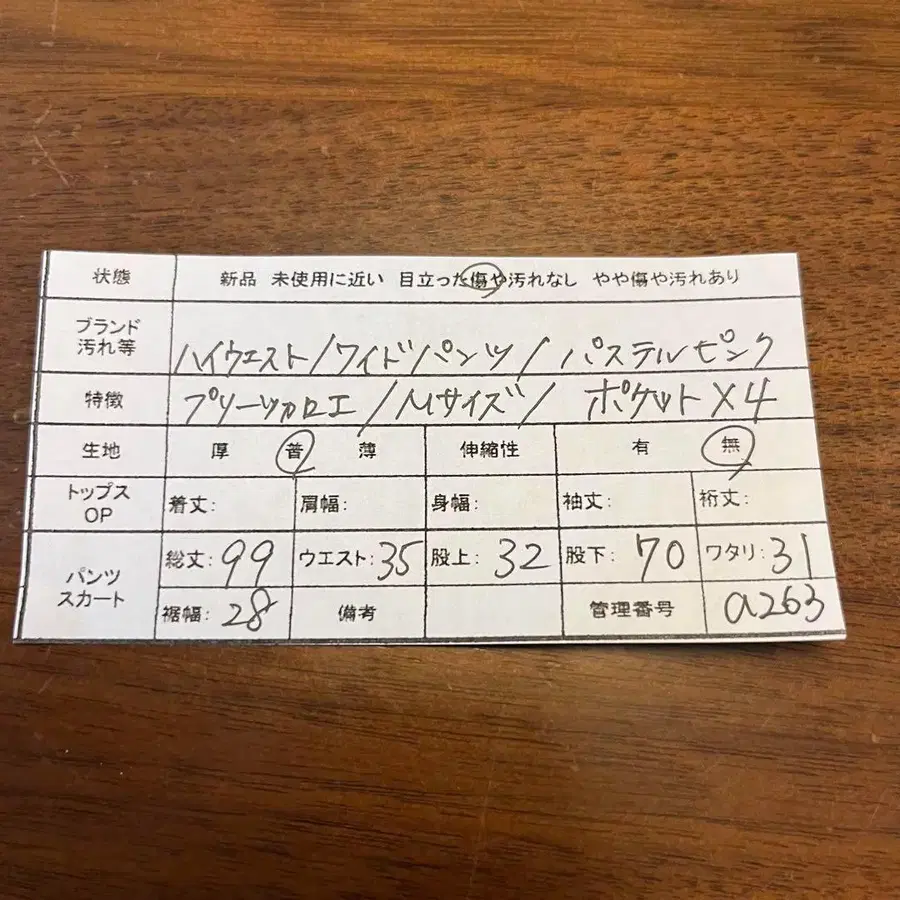 状態 新品 未使用に近い 目立った傷や汚れなし やや傷や汚れあり
ブランド
汚れ等 ハイウエスト/ワイドパンツ/パステルピンク
特徴 プリーツカロエ/Mサイズ/ ポケット×4
生地 厚 普 薄 伸縮性 有 無
トップス
OP 着丈: 肩幅: 身幅: 袖丈: 裄丈:
パンツ
スカート 総丈:99 ウエスト:35 股上:32 股下:70 ワタリ:31
裾幅:28 備考 管理番号 a263